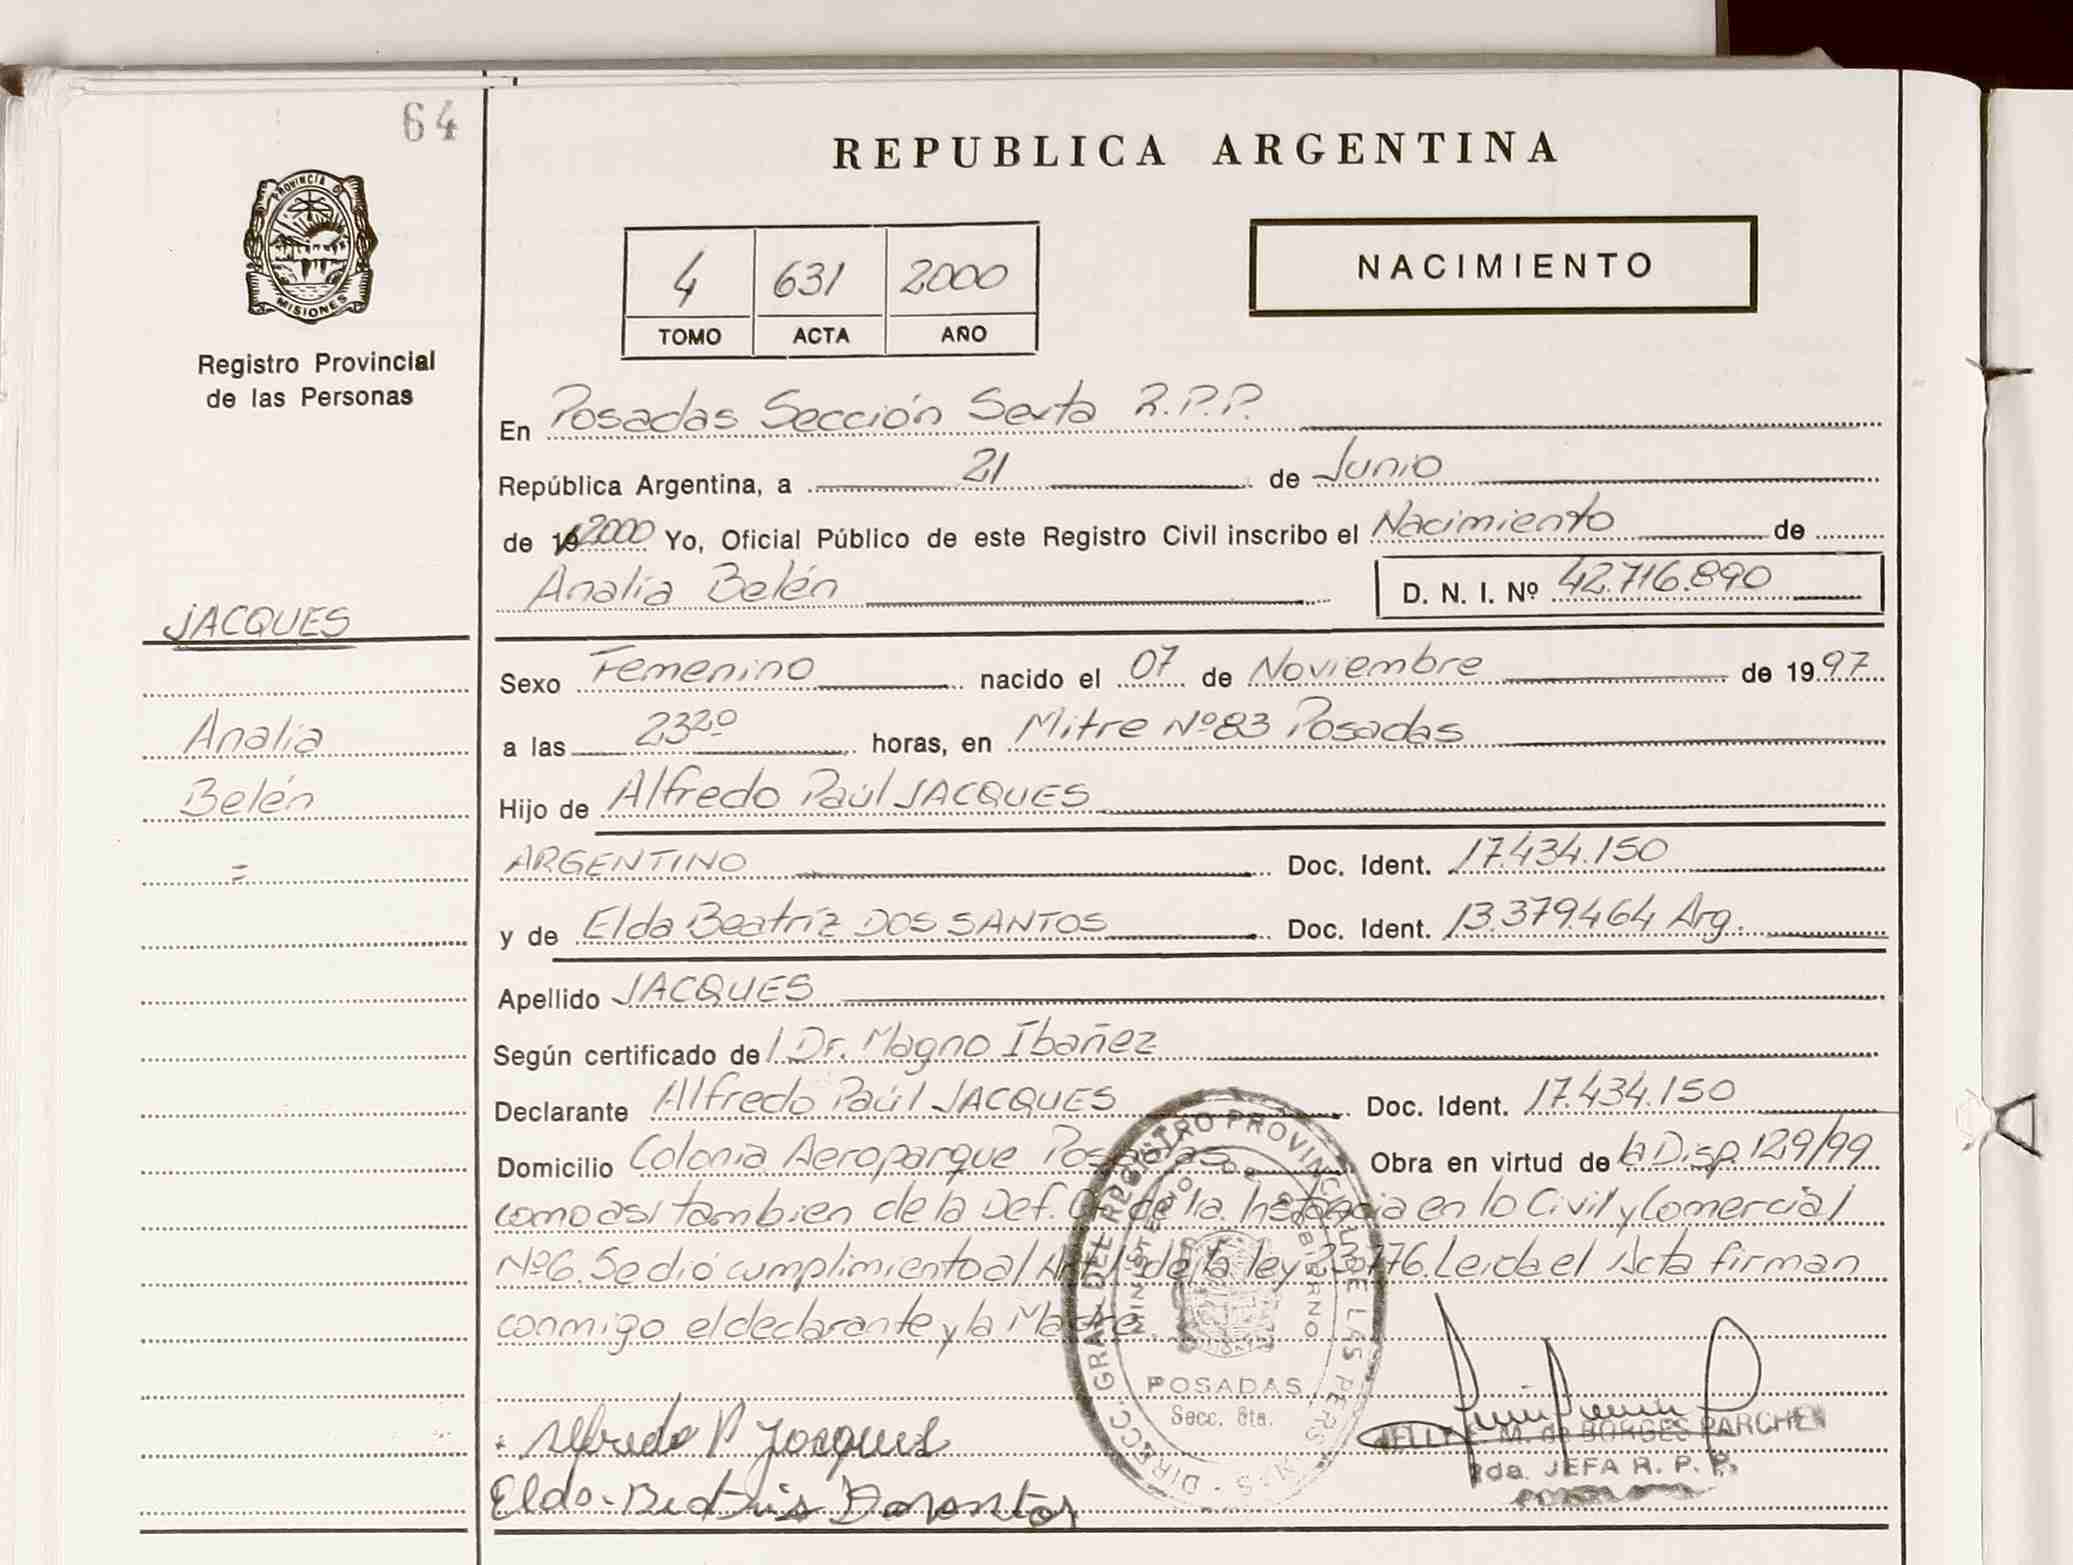 64
REPUBLICA ARGENTINA
PROVINCIA DE
MISIONES
Registro Provincial
de las Personas
4 631 2000
TOMO ACTA AÑO
NACIMIENTO
En Posadas Sección Sexta R.P.P.
República Argentina, a 21 de Junio
de 19 2000 Yo, Oficial Público de este Registro Civil inscribo el Nacimiento de
Analia Belén D. N. I. Nº 42.716.890
JACQUES
Analia
Belén
=
Sexo Femenino nacido el 07 de Noviembre de 1997
a las 23:20 horas, en Mitre Nº 83 Posadas
Hijo de Alfredo Paúl JACQUES
ARGENTINO Doc. Ident. 17.434.150
y de Elda Beatríz DOS SANTOS Doc. Ident. 13.379.464 Arg.
Apellido JACQUES
Según certificado del Dr. Magno Ibañez
Declarante Alfredo Paúl JACQUES Doc. Ident. 17.434.150
Domicilio Colonia Aeroparque Posadas Obra en virtud de la Disp. 129/99
como asi tambien de la Def. Of. de 1ra. Instancia en lo Civil y Comercial
Nº6. Se dió cumplimiento al Art. 1 de la ley 23.776. Leida el Acta firman
conmigo el declarante y la Madre.
DIRECC. GRAL. DEL REGISTRO PROVINCIAL DE LAS PERSONAS
MINISTERIO DE GOBIERNO
POSADAS
Secc. 6ta.
Alfredo P Jacques
Elda Beatris Dosantos
M. de BORGES PARCHEN
2da. JEFA R. P. P.